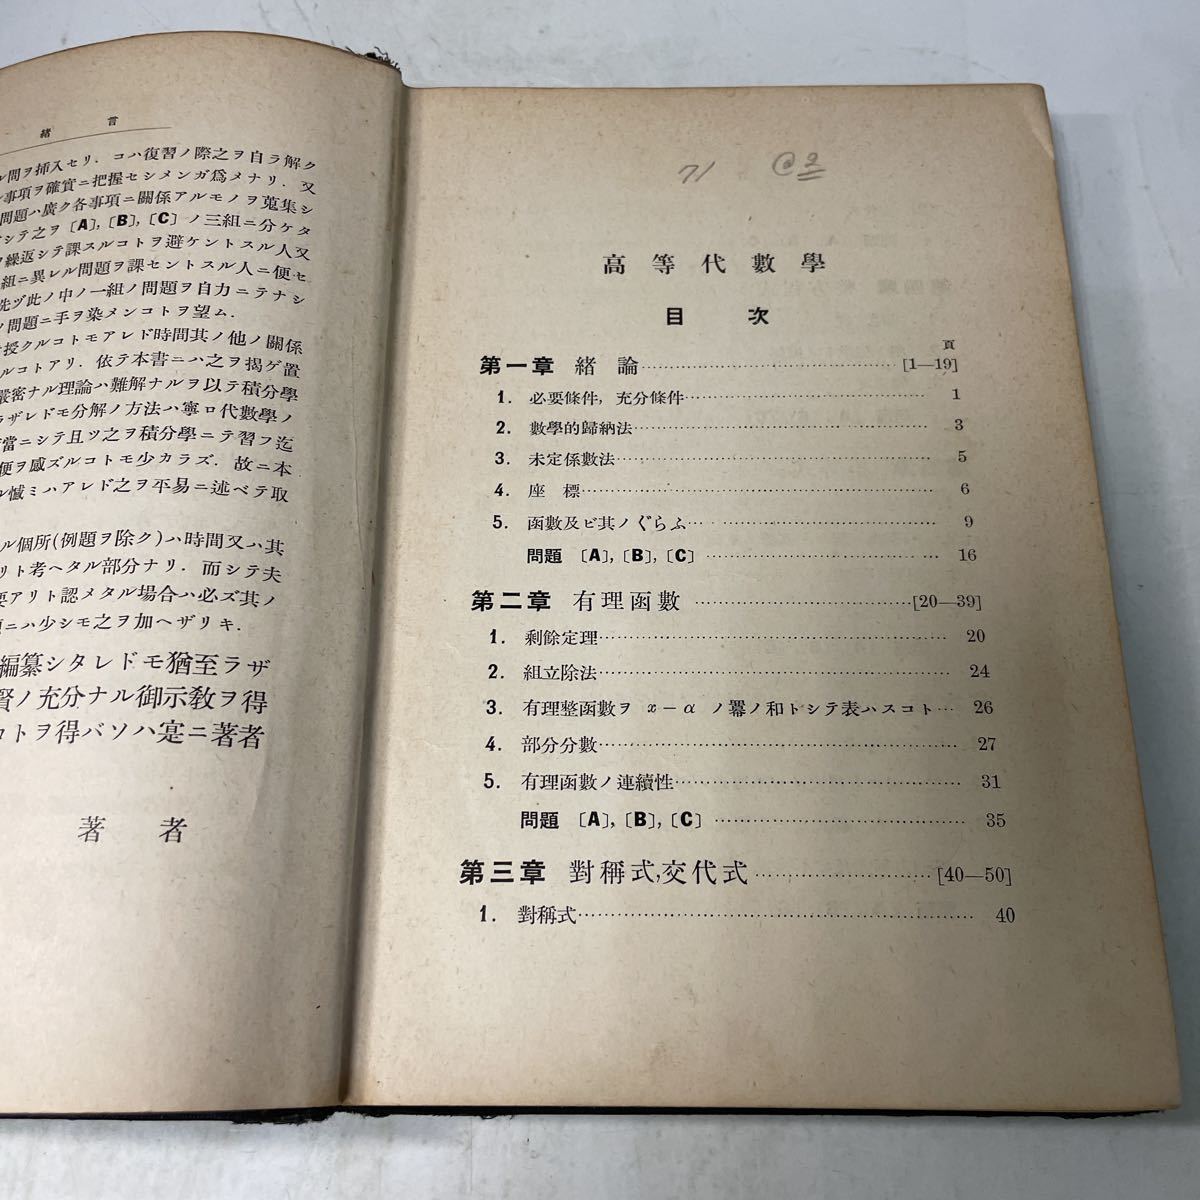 緒言
ル問ヲ挿入セリ．コハ復習ノ際之ヲ自ラ解ク
事項ヲ確實ニ把握セシメンガ爲メナリ．又
問題ハ廣ク各事項ニ關係アルモノヲ蒐集シ
シテ之ヲ〔A〕，〔B〕，〔C〕ノ三組ニ分ケタ
繰返シテ課スルコトヲ避ケントスル人又
組ニ異レル問題ヲ課セントスル人ニ便セ
先ヅ此ノ中ノ一組ノ問題ヲ自力ニテナシ
問題ニ手ヲ染メンコトヲ望ム．
授クルコトモアレド時間其ノ他ノ關係
ルコトアリ．依テ本書ニハ之ヲ揭ゲ置
嚴密ナル理論ハ難解ナルヲ以テ積分學
ラザレドモ分解ノ方法ハ寧ロ代數學ノ
當ニシテ且ツ之ヲ積分學ニテ習フ迄
便ヲ感ズルコトモ少カラズ．故ニ本
ル憾ミハアレド之ヲ平易ニ述ベテ取
ル個所(例題ヲ除ク)ハ時間又ハ其
リト考ヘタル部分ナリ．而シテ夫
要アリト認メタル場合ハ必ズ其ノ
ニハ少シモ之ヲ加ヘザリキ．
編纂シタレドモ猶至ラザ
賢ノ充分ナル御示敎ヲ得
コトヲ得バソハ寔ニ著者
著者
71 @2
高等代數學
目次
頁
第一章 緒論 [1—19]
1. 必要條件，充分條件 1
2. 數學的歸納法 3
3. 未定係數法 5
4. 座標 6
5. 函數及ビ其ノぐらふ 9
問題 〔A〕，〔B〕，〔C〕 16
第二章 有理函數 [20—39]
1. 剩餘定理 20
2. 組立除法 24
3. 有理整函數ヲ x−α ノ羃ノ和トシテ表ハスコト 26
4. 部分分數 27
5. 有理函數ノ連續性 31
問題 〔A〕，〔B〕，〔C〕 35
第三章 對稱式，交代式 [40—50]
1. 對稱式 40